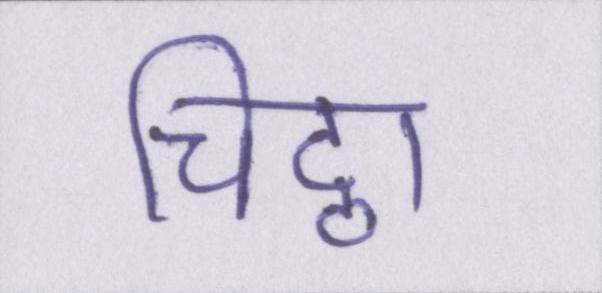 चिट्ठा